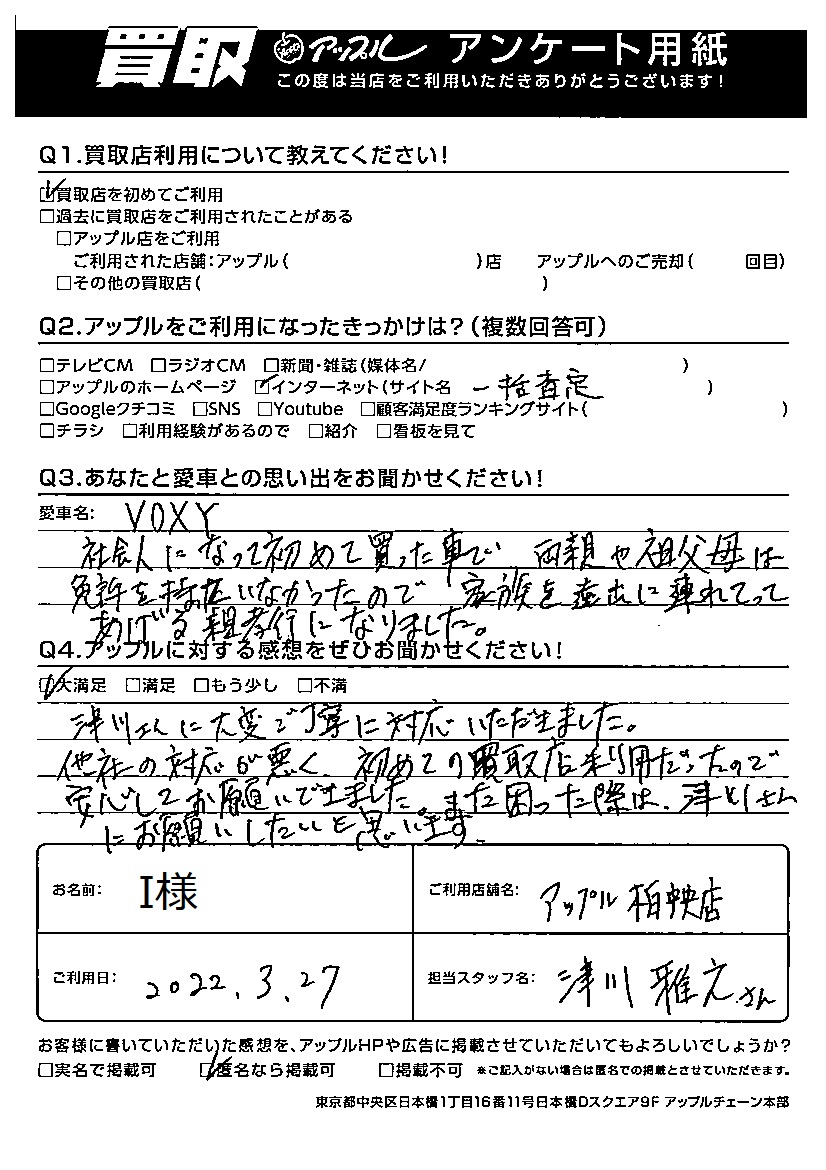 買取 アップル アンケート用紙
この度は当店をご利用いただきありがとうございます!
Q1.買取店利用について教えてください!
☑買取店を初めてご利用
□過去に買取店をご利用されたことがある
□アップル店をご利用
ご利用された店舗:アップル( )店 アップルへのご売却( 回目)
□その他の買取店( )
Q2.アップルをご利用になったきっかけは?(複数回答可)
□テレビCM □ラジオCM □新聞・雑誌(媒体名/ )
□アップルのホームページ ☑インターネット(サイト名 一括査定 )
□Googleクチコミ □SNS □Youtube □顧客満足度ランキングサイト( )
□チラシ □利用経験があるので □紹介 □看板を見て
Q3.あなたと愛車との思い出をお聞かせください!
愛車名: VOXY
社会人になって初めて買った車で 両親や祖父母は
免許を持っていなかったので 家族を遠出に連れてって
あげる親孝行になりました。
Q4.アップルに対する感想をぜひお聞かせください!
☑大満足 □満足 □もう少し □不満
津川さんに大変ご丁寧に対応いただきました。
他社の対応が悪く、初めての買取店利用だったので
安心してお願いできました。また困った際は、津川さん
にお願いしたいと思います。
お名前: I様 ご利用店舗名: アップル 柏中央店
ご利用日: 2022.3.27 担当スタッフ名: 津川 雅之さん
お客様に書いていただいた感想を、アップルHPや広告に掲載させていただいてもよろしいでしょうか?
□実名で掲載可 ☑匿名なら掲載可 □掲載不可 ※ご記入がない場合は匿名での掲載とさせていただきます。
東京都中央区日本橋1丁目16番11号日本橋Dスクエア9F アップルチェーン本部